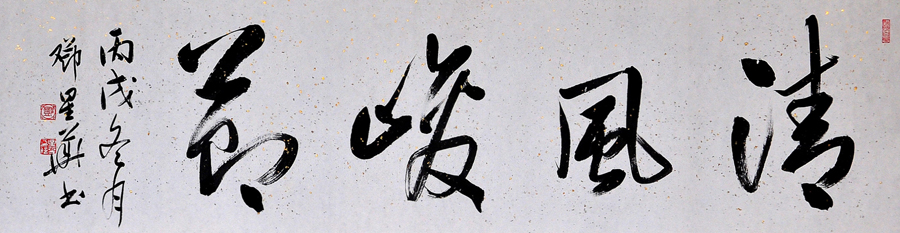 清風峻節
丙戌冬月
鄧星華書